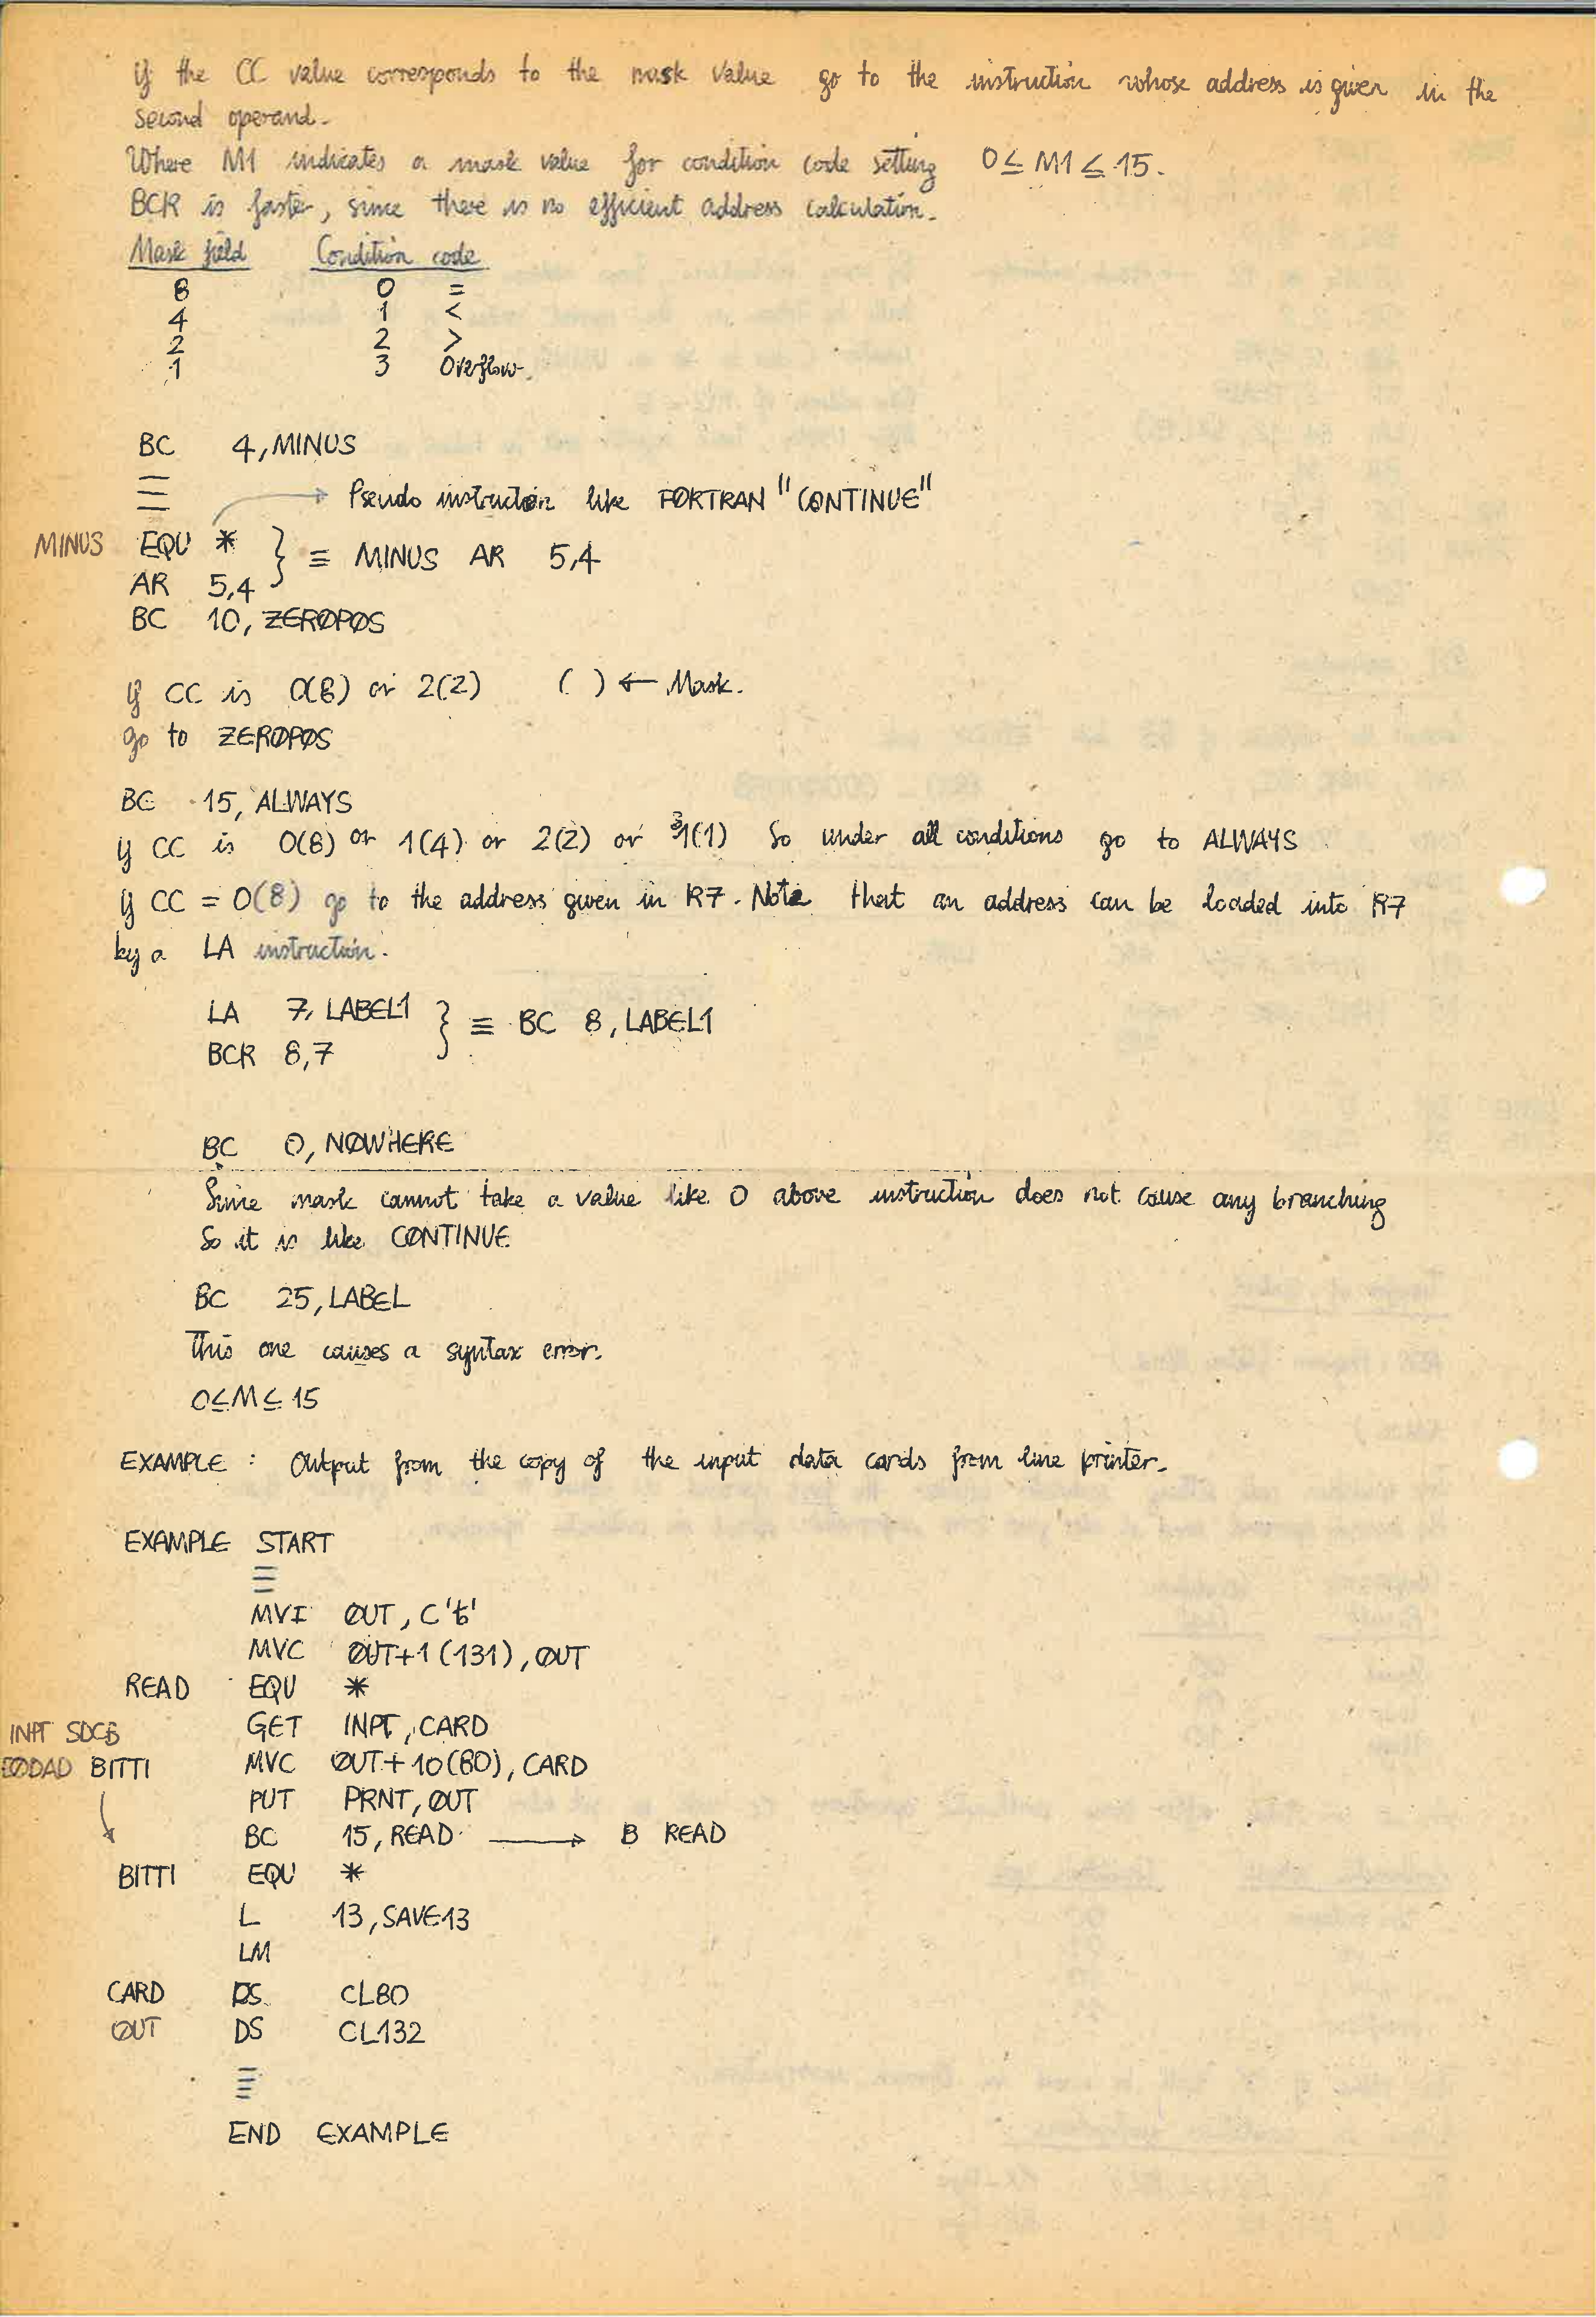 if the CC value corresponds to the mask value go to the instruction whose address is given in the
second operand.
Where M1 indicates a mask value for condition code setting 0≤M1≤15.
BCR is faster, since there is no efficient address calculation.
Mask field Condition code
8 0 =
4 1 <
2 2 >
1 3 Overflow.
BC 4,MINUS
→ Pseudo instruction like FØRTRAN "CØNTINUE"
MINUS EQU * } ≡ MINUS AR 5,4
AR 5,4
BC 10, ZERØPØS
if CC is 0(8) or 2(2) ( ) ← Mask.
go to ZERØPØS
BC 15, ALWAYS
if CC is 0(8) or 1(4) or 2(2) or 3(1) So under all conditions go to ALWAYS
if CC = 0(8) go to the address given in R7. Note that an address can be loaded into R7
by a LA instruction.
LA 7, LABEL1 } ≡ BC 8, LABEL1
BCR 8,7
BC 0, NØWHERE
Since mask cannot take a value like 0 above instruction does not cause any branching
So it is like CØNTINUE
BC 25, LABEL
This one causes a syntax error.
0≤M≤15
EXAMPLE : Output from the copy of the input data cards from line printer.
EXAMPLE START
MVI ØUT, C'ƀ'
MVC ØUT+1(131), ØUT
READ EQU *
GET INPT, CARD
INPT SDCB
EØDAD BITTI MVC ØUT+10(80), CARD
PUT PRNT, ØUT
BC 15, READ → B READ
BITTI EQU *
L 13, SAVE13
LM
CARD DS CL80
ØUT DS CL132
END EXAMPLE